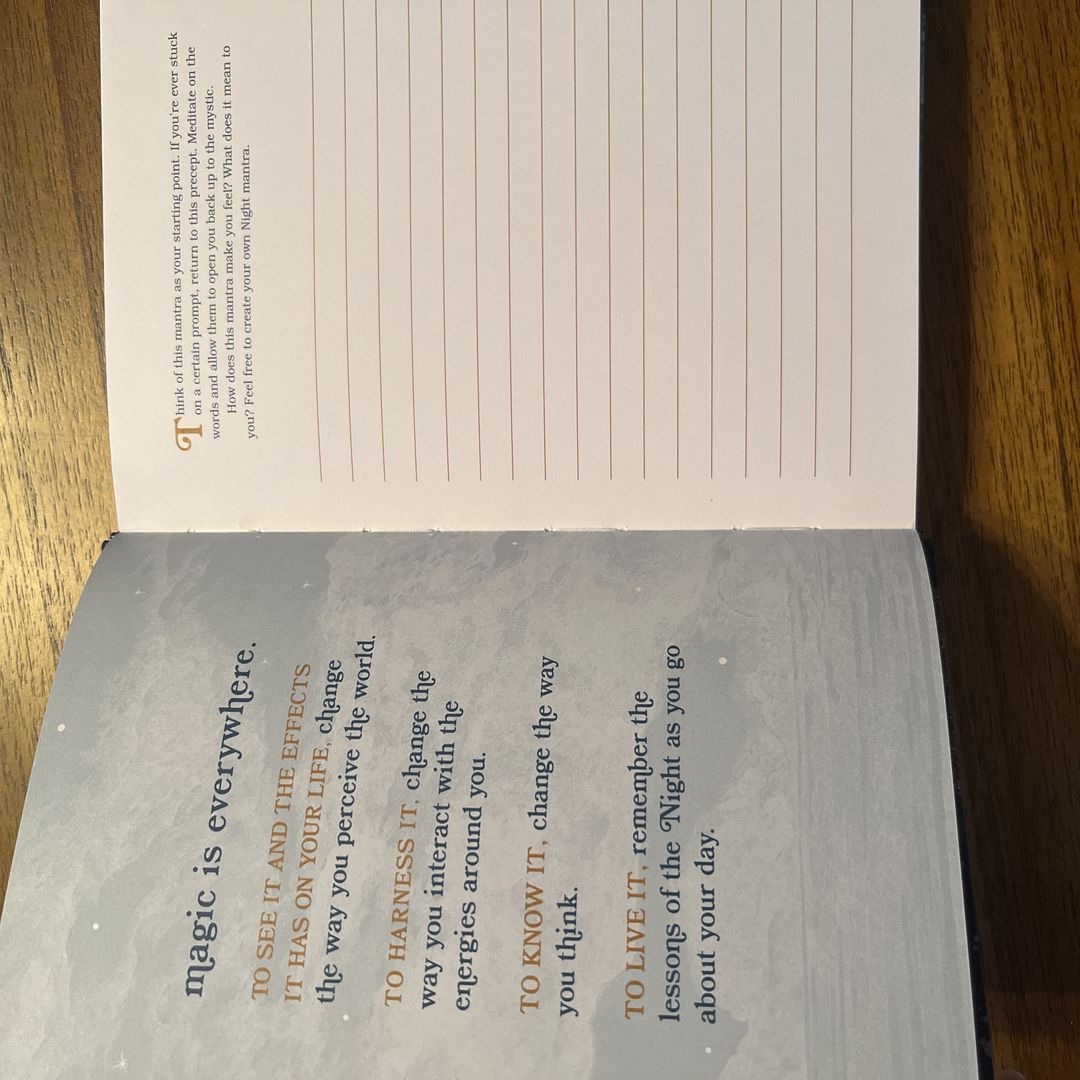 magic is everywhere.
TO SEE IT AND THE EFFECTS
IT HAS ON YOUR LIFE, change
the way you perceive the world.
TO HARNESS IT, change the
way you interact with the
energies around you.
TO KNOW IT, change the way
you think.
TO LIVE IT, remember the
lessons of the Night as you go
about your day.
Think of this mantra as your starting point. If you're ever stuck
on a certain prompt, return to this precept. Meditate on the
words and allow them to open you back up to the mystic.
How does this mantra make you feel? What does it mean to
you? Feel free to create your own Night mantra.